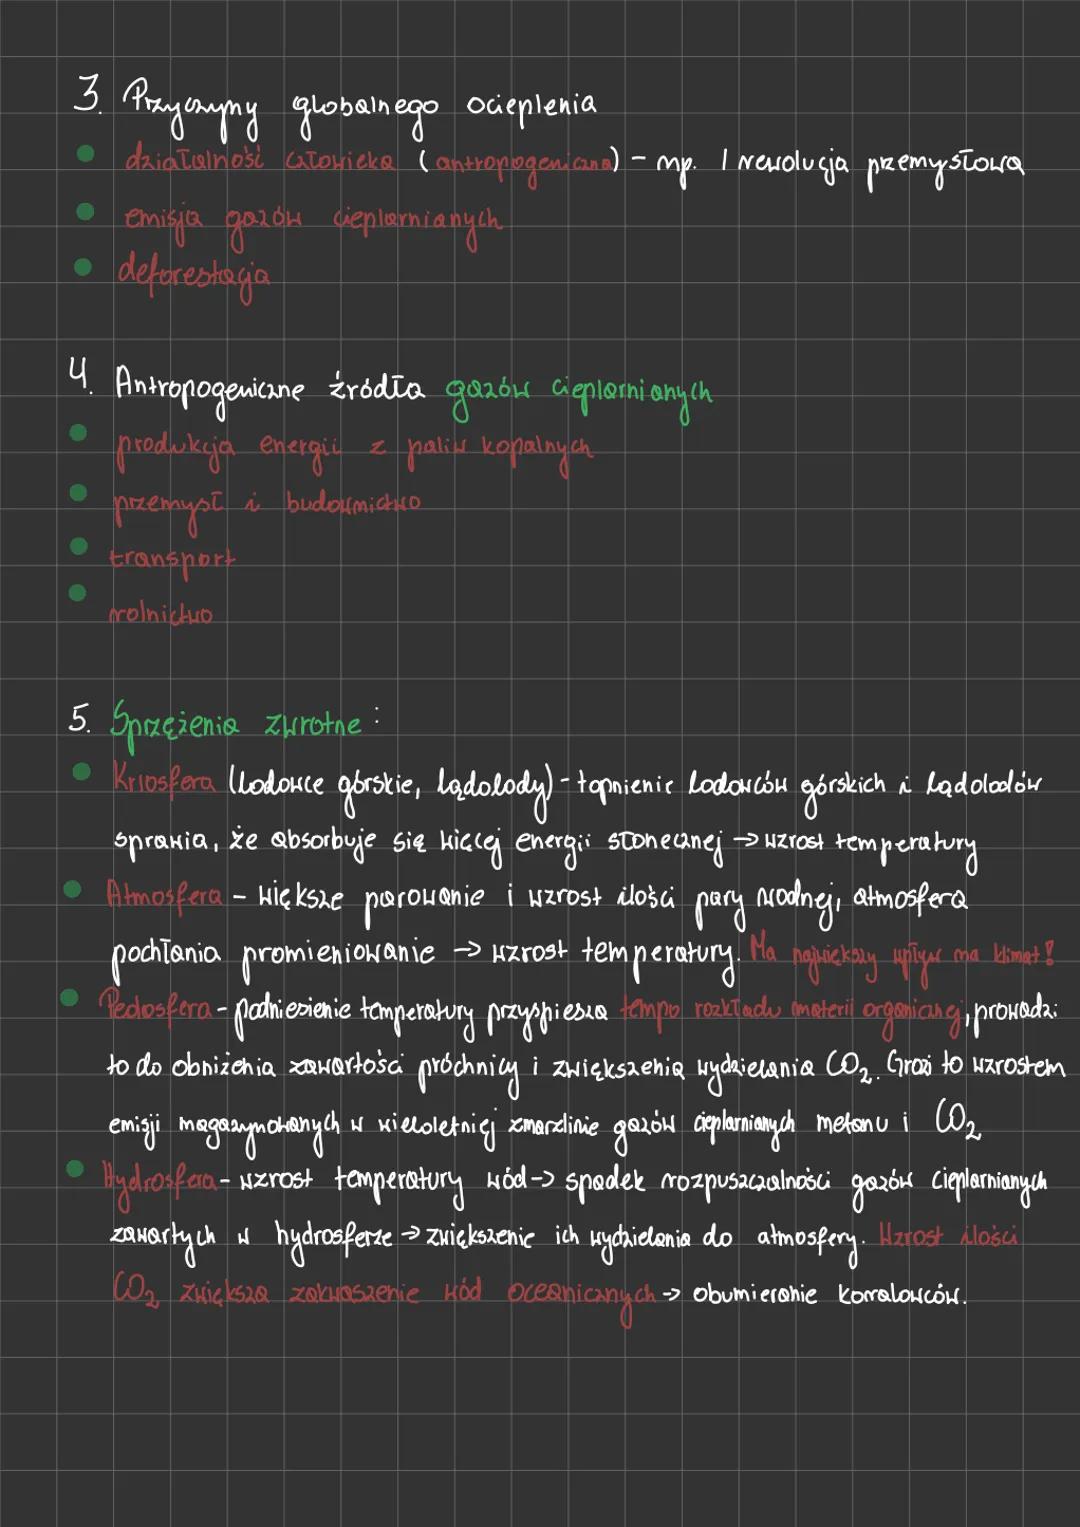 3. Przyczyny globalnego ocieplenia
działalność człowieka (antropogeniczna) - np. I rewolucja przemysłowa
emisja gazów cieplarnianych
deforestacja
4. Antropogeniczne źródła gazów cieplarnianych
produkcja energii z paliw kopalnych
przemysł i budownictwo
transport
rolnictwo
5. Sprzężenia zwrotne:
Kriosfera (lodowce górskie, lądolody) - topnienie lodowców górskich i lądolodów
sprawia, że absorbuje się więcej energii słonecznej → wzrost temperatury
Atmosfera - większe parowanie i wzrost ilości pary wodnej, atmosfera
pochłania promieniowanie → wzrost temperatury. Ma największy wpływ na klimat!
Pedosfera - podniesienie temperatury przyspiesza tempo rozkładu materii organicznej, prowadzi
to do obniżenia zawartości próchnicy i zwiększenia wydzielania CO₂. Grozi to wzrostem
emisji magazynowanych w wieloletniej zmarzlinie gazów cieplarnianych metanu i CO₂
Hydrosfera - wzrost temperatury wód → spadek rozpuszczalności gazów cieplarnianych
zawartych w hydrosferze → zwiększenie ich wydzielania do atmosfery. Wzrost ilości
CO₂ zwiększa zakwaszenie wód oceanicznych → obumieranie koralowców.